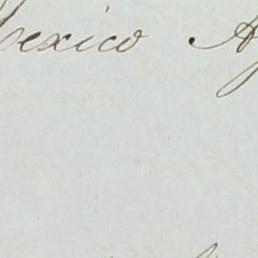 Mexico A